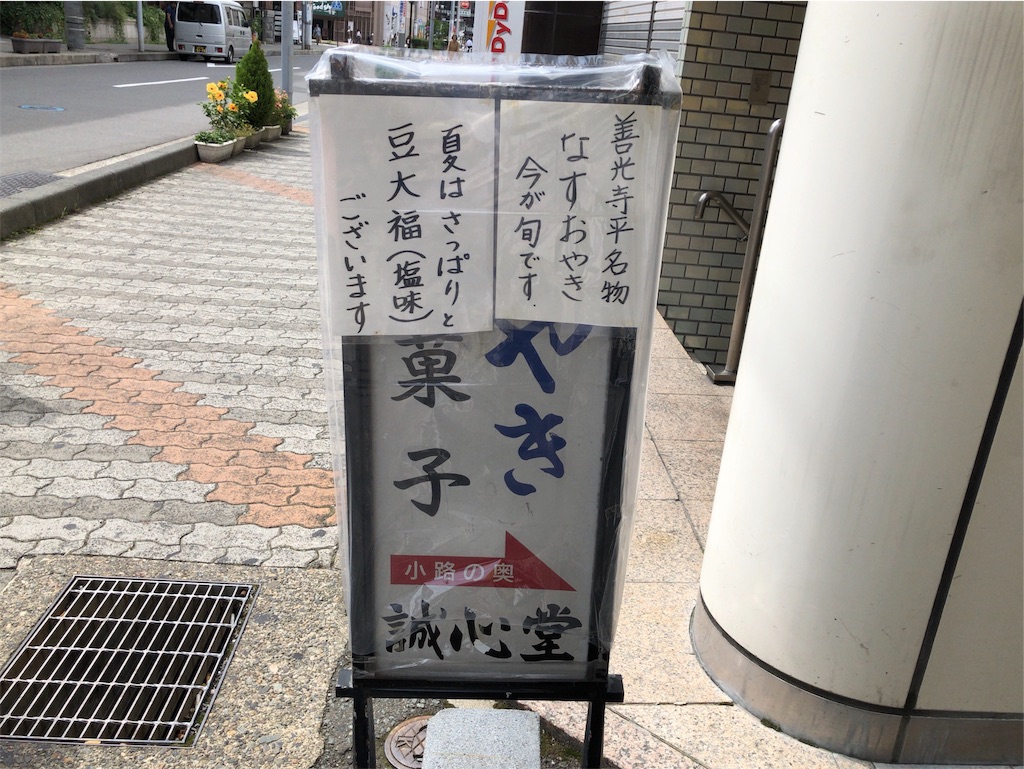 善光寺平名物
なすおやき
今が旬です.
夏はさっぱりと
豆大福(塩味)
ございます
やき
菓子
小路の奥
誠心堂
DyD